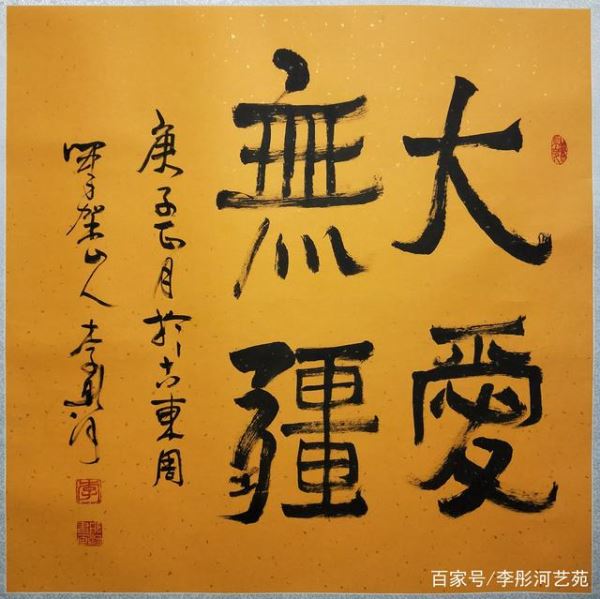 大愛
無疆
庚子正月於古東周
笔架山人李彤河
李
百家号/李彤河艺苑